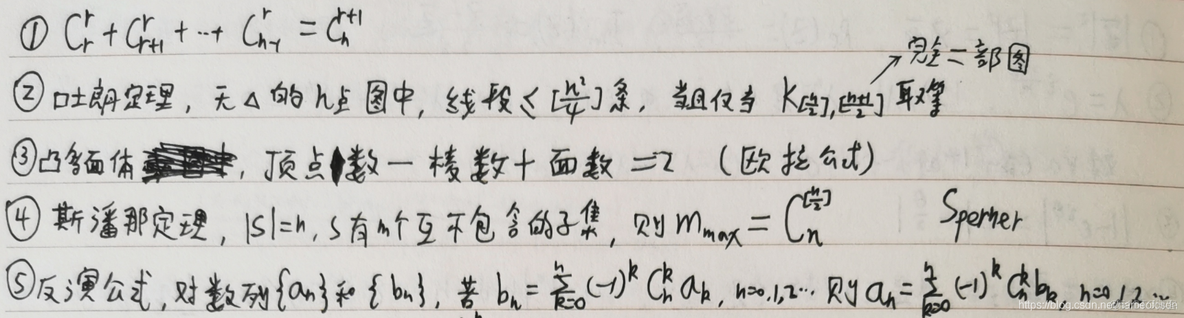 ① C_r^r + C_{r+1}^r + … + C_{n-1}^r = C_n^{r+1}
→完全二部图
② 吐朗定理，无△的n点图中，线段≤[n²/4]条，当且仅当 K_{[n/2],[(n+1)/2]} 取等
③ 凸多面体，顶点数－棱数＋面数＝2（欧拉公式）
④ 斯潘那定理，|S|=n，S有m个互不包含的子集，则 m_max = C_n^{[n/2]} Sperner
⑤ 反演公式，对数列{a_n}和{b_n}，若 b_n = \sum_{k=0}^n (-1)^k C_n^k a_k，n=0,1,2… 则 a_n = \sum_{k=0}^n (-1)^k C_n^k b_k，n=0,1,2…